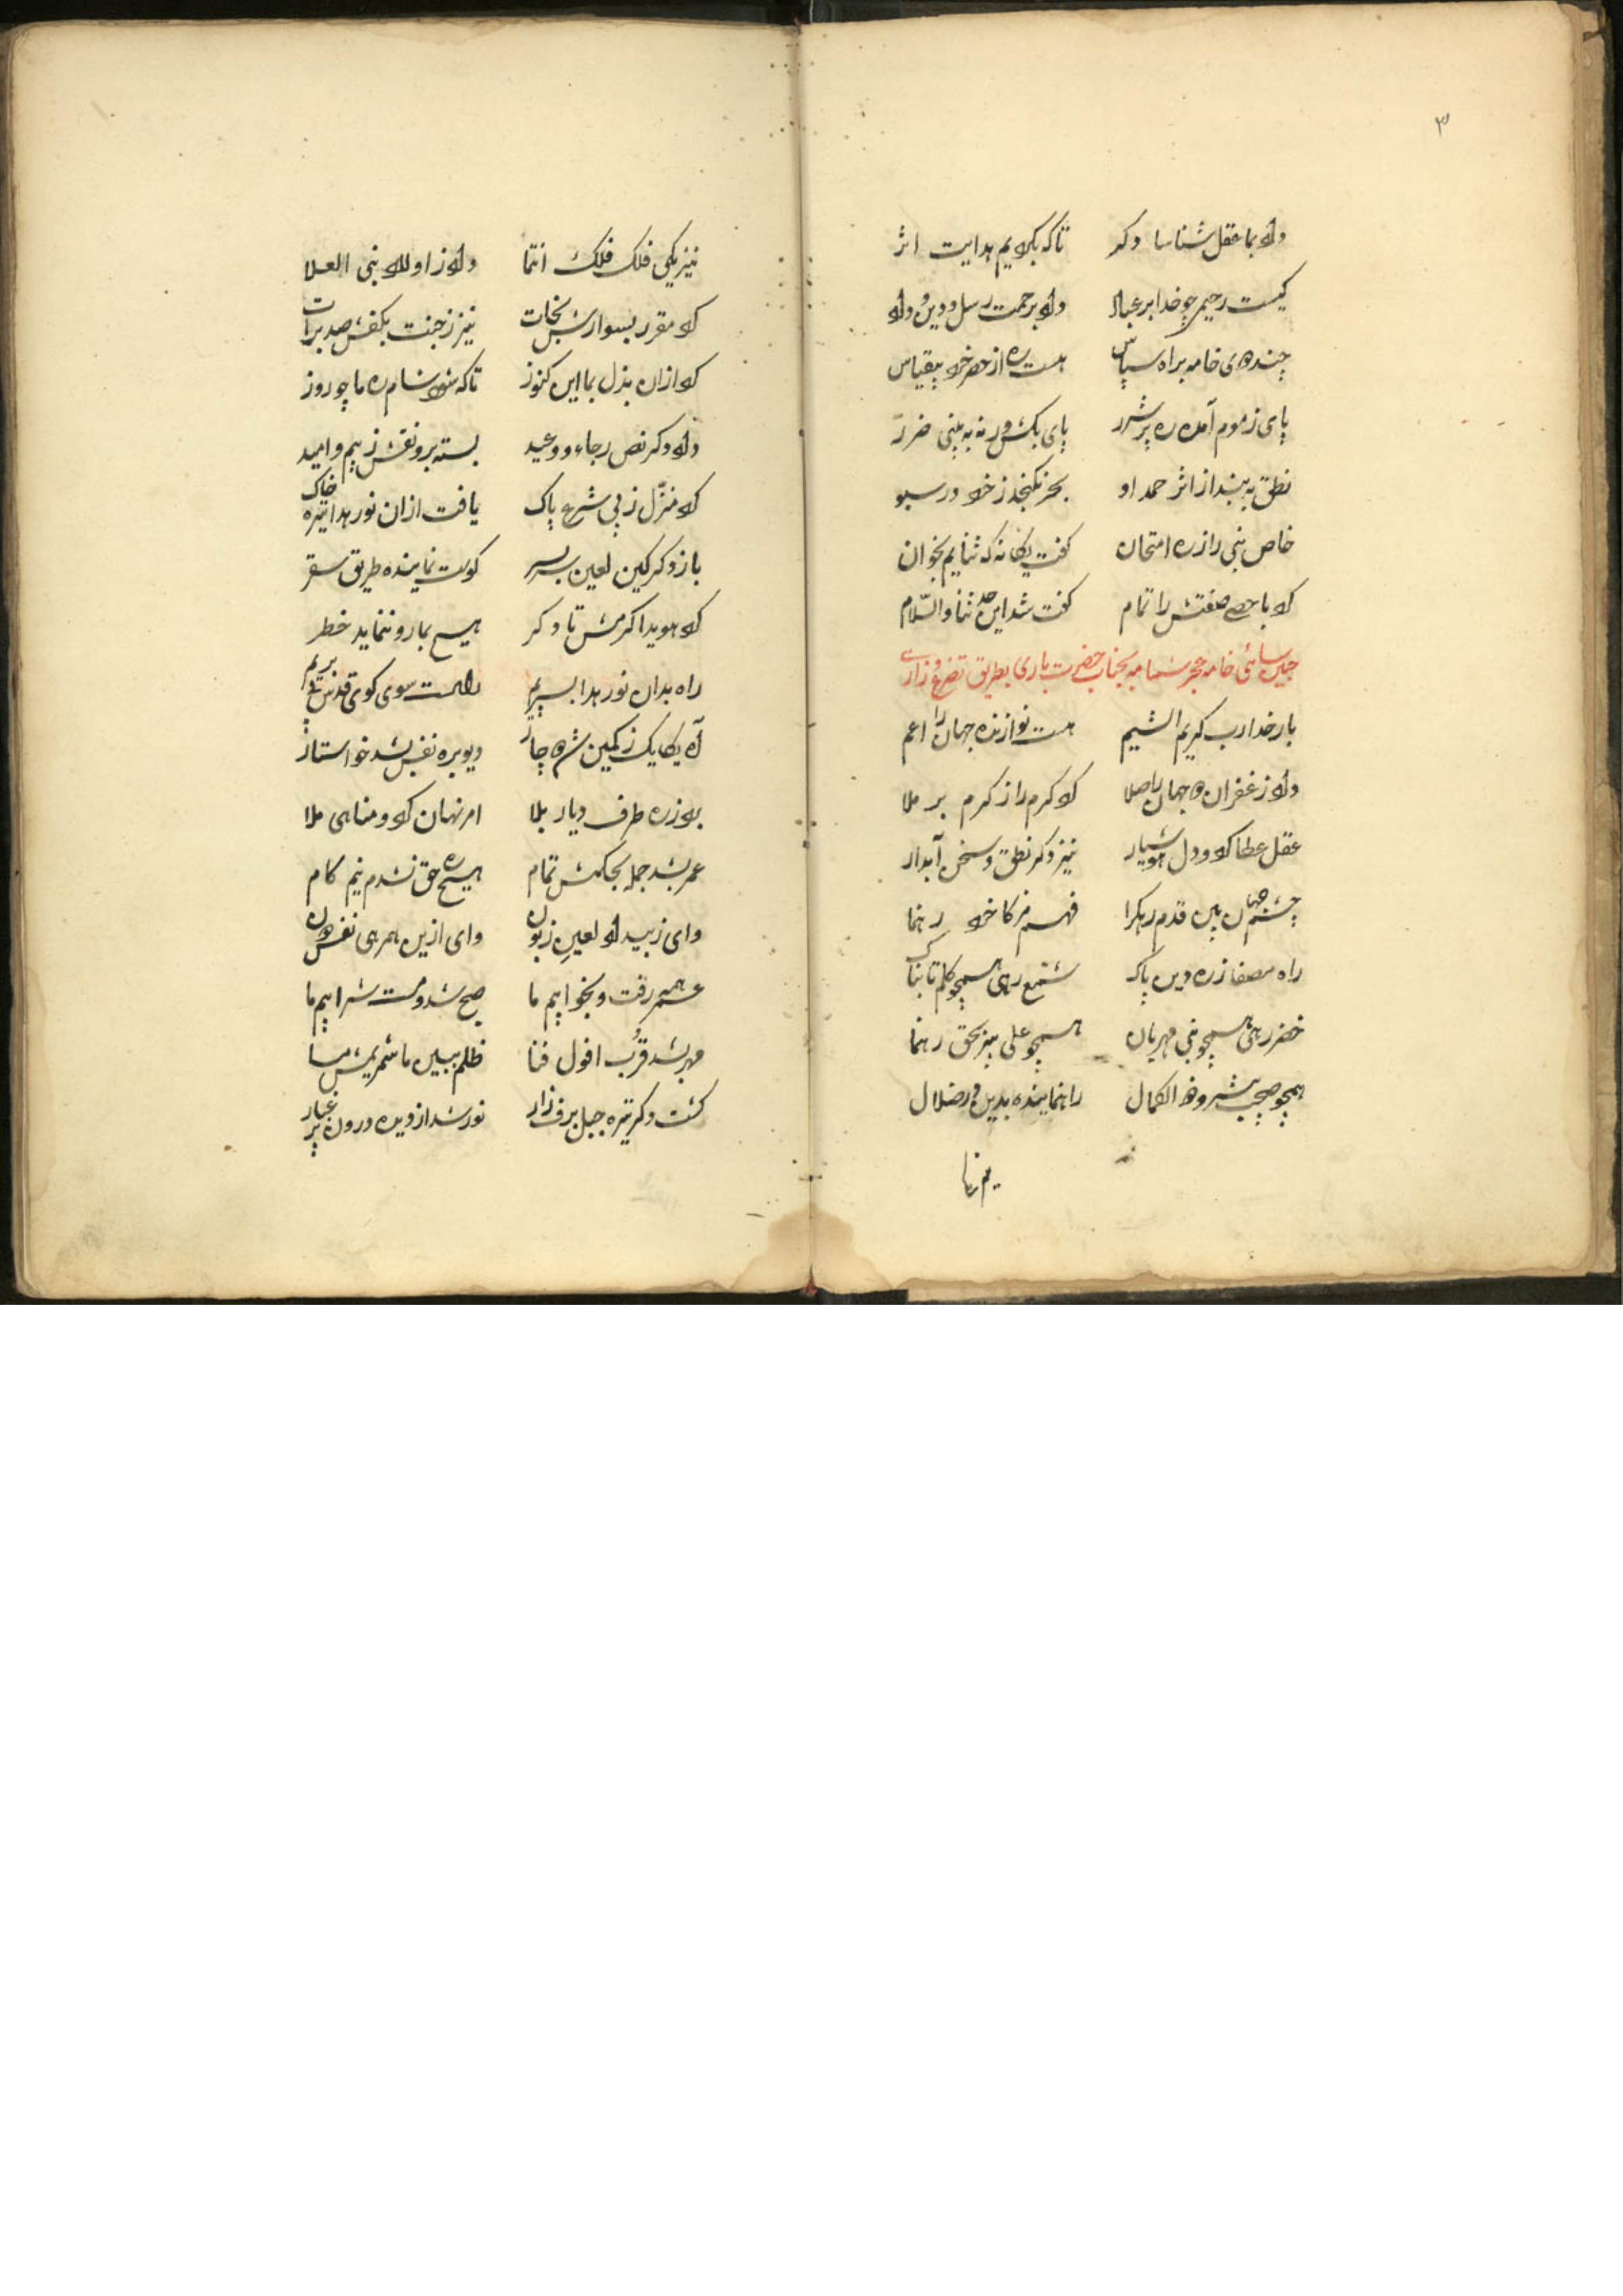 ۳
داد بما عقل شناسا دکر تا که بکویم هدایت اثر
کیست رحیمی چو خدا بر عباد داد برحمت رسل و دین و داد
چند دهی خامه براه سپاس هست ره از حصر خرد بیقیاس
پای ز موم آمده ره پر شرر پای بکش ورنه به بینی ضرر
نطق به بند از اثر حمد او بحر نکنجد ز خرد در سبو
خاص نبی را ز ره امتحان کفت یکانه که ثنایم بخوان
کرد با حصی صفتش را تمام کفت شد این حد ثنا والسّلام
جبین سائی خامه حجر سا به بجناب حضرت باری بطریق تضرع و زاری
بار خدا رب کریم الشیم هست نوازنده جهان را اعم
داد ز غفران همه جهان را صلا کرد کرم را ز کرم بر ملا
عقل عطا کرد و دل هوشیار نیز دکر نطق و سخن آبدار
چشم جهان بین قدم رهکرا فهم خرد رهنما
راه مصفا ز ره دین پاک شمع رهی همچو کلم تابناک
خضر رهی همچو نبی مهربان همچو علی نیز بحق رهنما
همچو صحب پیشرو ذو الکمال راه نماینده بدین در ضلال
نیز یکی فلک فلک انتما داد ز اولاد نبی العلا
کرد مقرر بسوارش نجات نیز ز جنت بکفش صد برات
کرد ازان بذل بما این کنوز تا که شود شام ره ما چو روز
داد دکر نص رجاء و وعید بسته برو نقش ز بیم و امید
کرد منزّل ز پی شرع پاک یافت ازان نور هدا تیره خاک
باز دکر کین لعین سربسر کوست نماینده طریق سقر
کرد هویدا کرمش تا دکر هیچ بما رو ننماید خطر
راه بدان نور هدا بسپریم راهست سوی کوی قدس بریم
آه یکایک ز کمین شره چار دیو بره نفس شد خواستار
برد ز ره طرف دیار بلا امر نهان کرد و مناهی ملا
عمر بشد جمله بحکمش تمام هیچ ره حق نشدم نیم کام
وای ز بیداد لعین زبون وای ازین همرهی نفس دون
عمر همه رفت و بخوابیم ما صبح شد و مست شرابیم ما
مهر بشد قرب افول فنا ظلم ببین ما شمریمش مسا
کشت دکر تیره جبل برف زار نور شد از دیده درون پر غبار